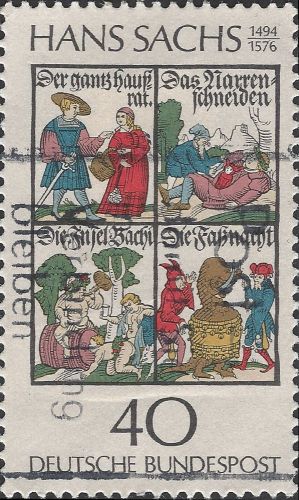 HANS SACHS 1494
1576
Der gantz hauß=
rat.
Das Narren=
schneiden
Die Insel Bachi
Die Faßnacht
bleiben
40
DEUTSCHE BUNDESPOST